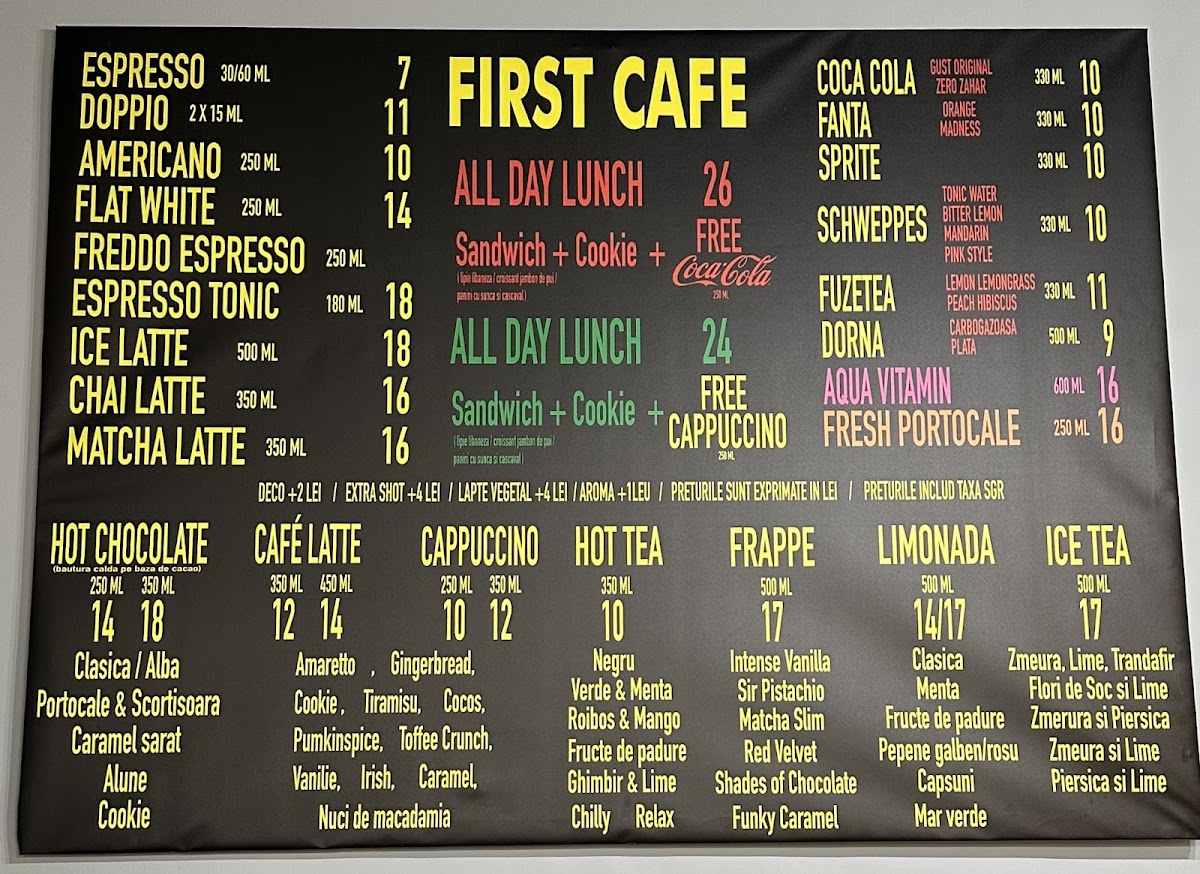 FIRST CAFE
ESPRESSO 30/60 ML 7
DOPPIO 2 X 15 ML 11
AMERICANO 250 ML 10
FLAT WHITE 250 ML 14
FREDDO ESPRESSO 250 ML
ESPRESSO TONIC 180 ML 18
ICE LATTE 500 ML 18
CHAI LATTE 350 ML 16
MATCHA LATTE 350 ML 16
ALL DAY LUNCH 26
Sandwich + Cookie + FREE
Coca-Cola
250 ML
( lipie libaneza / croissant jambon de pui /
panini cu sunca si cascaval )
ALL DAY LUNCH 24
Sandwich + Cookie + FREE
CAPPUCCINO
250 ML
( lipie libaneza / croissant jambon de pui /
panini cu sunca si cascaval )
COCA COLA GUST ORIGINAL
ZERO ZAHAR 330 ML 10
FANTA ORANGE
MADNESS 330 ML 10
SPRITE 330 ML 10
SCHWEPPES TONIC WATER
BITTER LEMON
MANDARIN
PINK STYLE 330 ML 10
FUZETEA LEMON LEMONGRASS
PEACH HIBISCUS 330 ML 11
DORNA CARBOGAZOASA
PLATA 500 ML 9
AQUA VITAMIN 600 ML 16
FRESH PORTOCALE 250 ML 16
DECO +2 LEI / EXTRA SHOT +4 LEI / LAPTE VEGETAL +4 LEI / AROMA +1LEU / PRETURILE SUNT EXPRIMATE IN LEI / PRETURILE INCLUD TAXA SGR
HOT CHOCOLATE
(bautura calda pe baza de cacao)
250 ML 350 ML
14 18
Clasica / Alba
Portocale & Scortisoara
Caramel sarat
Alune
Cookie
CAFÉ LATTE
350 ML 450 ML
12 14
CAPPUCCINO
250 ML 350 ML
10 12
Amaretto , Gingerbread,
Cookie , Tiramisu, Cocos,
Pumkinspice, Toffee Crunch,
Vanilie, Irish, Caramel,
Nuci de macadamia
HOT TEA
350 ML
10
Negru
Verde & Menta
Roibos & Mango
Fructe de padure
Ghimbir & Lime
Chilly Relax
FRAPPE
500 ML
17
Intense Vanilla
Sir Pistachio
Matcha Slim
Red Velvet
Shades of Chocolate
Funky Caramel
LIMONADA
500 ML
14/17
Clasica
Menta
Fructe de padure
Pepene galben/rosu
Capsuni
Mar verde
ICE TEA
500 ML
17
Zmeura, Lime, Trandafir
Flori de Soc si Lime
Zmerura si Piersica
Zmeura si Lime
Piersica si Lime